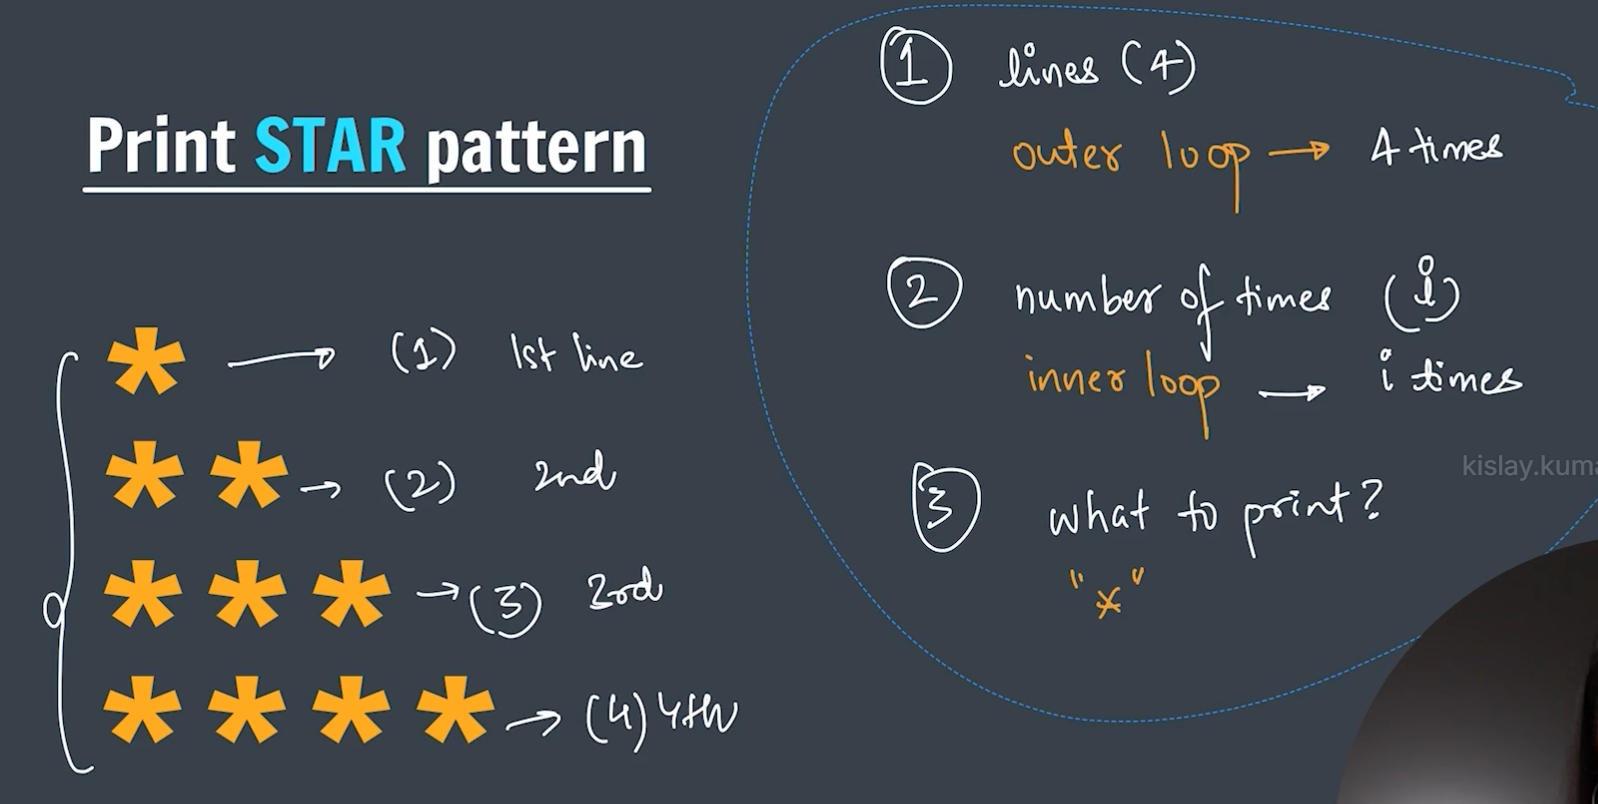 Print STAR pattern
* → (1) 1st line
* * → (2) 2nd
* * * → (3) 3rd
* * * * → (4) 4th
① lines (4)
outer loop → 4 times
② number of times (i)
inner loop → i times
③ what to print?
"*"
kislay.kuma